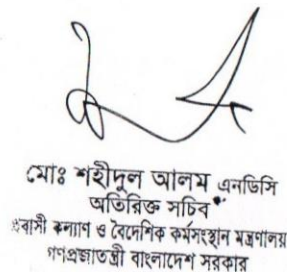 মোঃ শহীদুল আলম এনডিসি
অতিরিক্ত সচিব
প্রবাসী কল্যাণ ও বৈদেশিক কর্মসংস্থান মন্ত্রণালয়
গণপ্রজাতন্ত্রী বাংলাদেশ সরকার